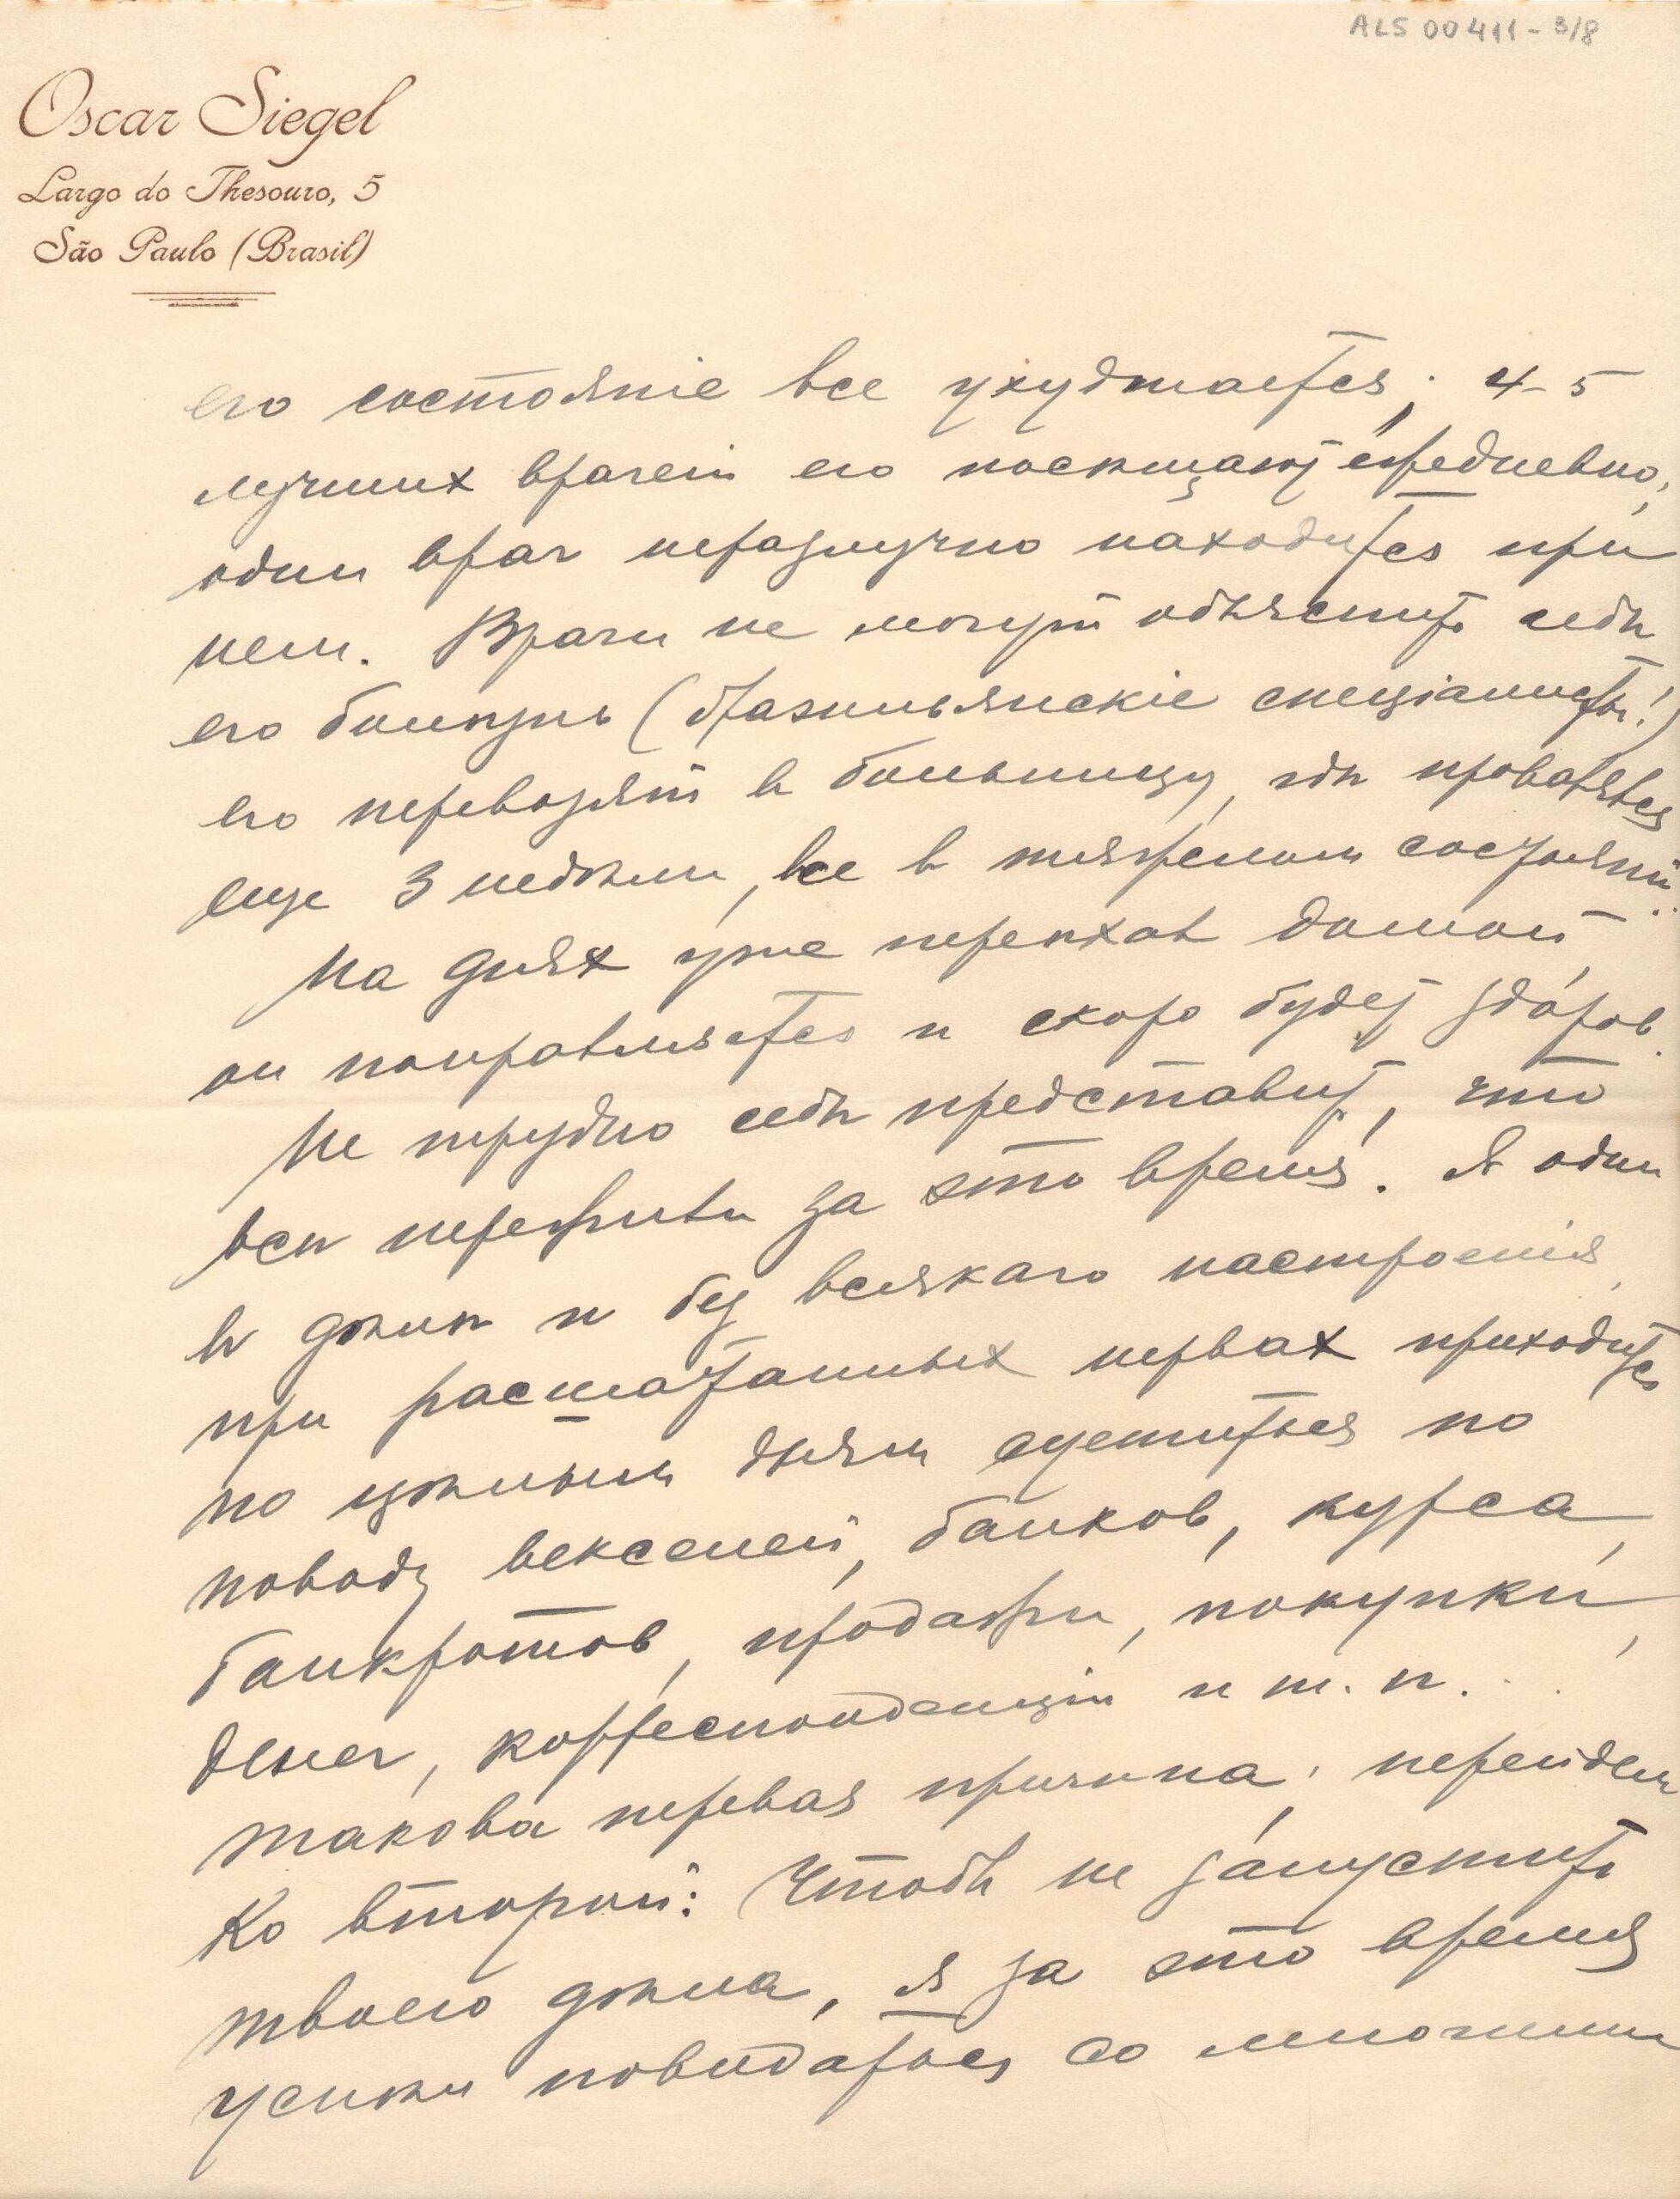 ALS 00411-3/8
Oscar Siegel
Largo do Thesouro, 5
São Paulo (Brasil)
его состоянiе все ухудшается; 4-5
лучших врачей его посѣщают ежедневно,
один врач неразлучно находится при
нем. Врачи не могут объяснить себѣ
его болѣзнь (бразильянскiе спецiалисты!)
его перевозят в больницу, гдѣ провалялся
еще 3 недѣли, все в тяжелом состоянiи.
На днях уже переѣхав домой
он поправляется и скоро будет здоров.
Не трудно себѣ представить, что
всѣ пережили за это время. Я один
в дѣлѣ и без всякаго настроенiя,
при расшатанных нервах приходится
по цѣлым дням суетиться по
поводу векселей, банков, курса,
банкротов, продажи, покупки,
денег, корреспонденцiи и т. п. . .
такова первая причина; перейдем
ко второй: Чтобы не запустить
твоего дѣла, я за это время
успѣл повидаться со многими